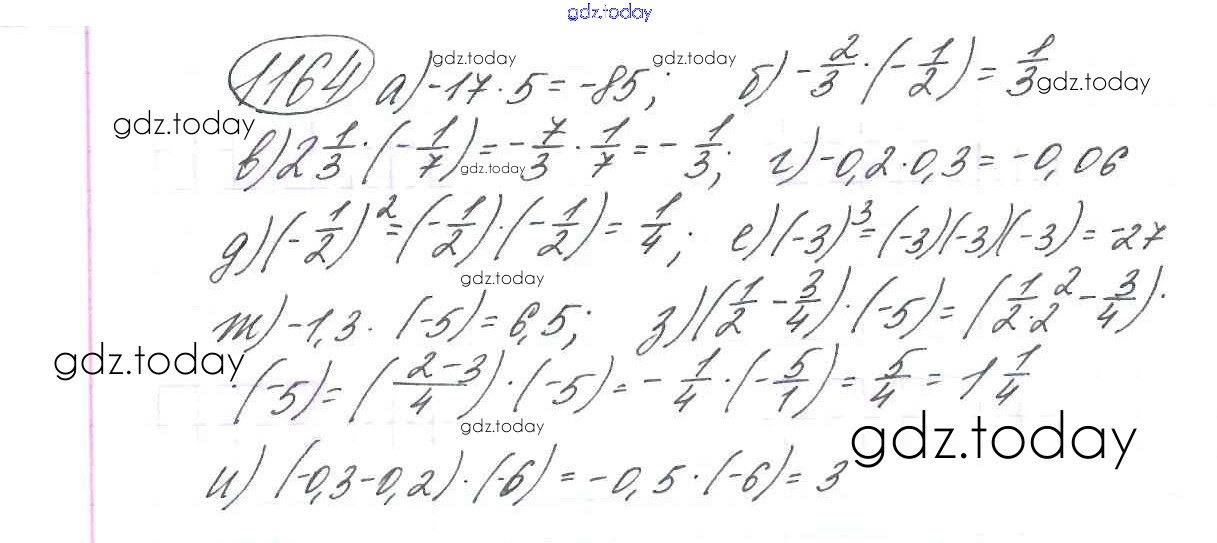 gdz.today
1164 а) -17 · 5 = -85; б) -2/3 · (-1/2) = 1/3
gdz.today gdz.today gdz.today gdz.today
в) 2 1/3 · (-1/7) = -7/3 · 1/7 = -1/3; г) -0,2 · 0,3 = -0,06
gdz.today
д) (-1/2)² = (-1/2) · (-1/2) = 1/4; е) (-3)³ = (-3)(-3)(-3) = -27
gdz.today
ж) -1,3 · (-5) = 6,5; з) (1/2 - 3/4) · (-5) = (1·2/2·2 - 3/4) ·
gdz.today
· (-5) = ((2-3)/4) · (-5) = -1/4 · (-5/1) = 5/4 = 1 1/4
gdz.today gdz.today
и) (-0,3-0,2) · (-6) = -0,5 · (-6) = 3